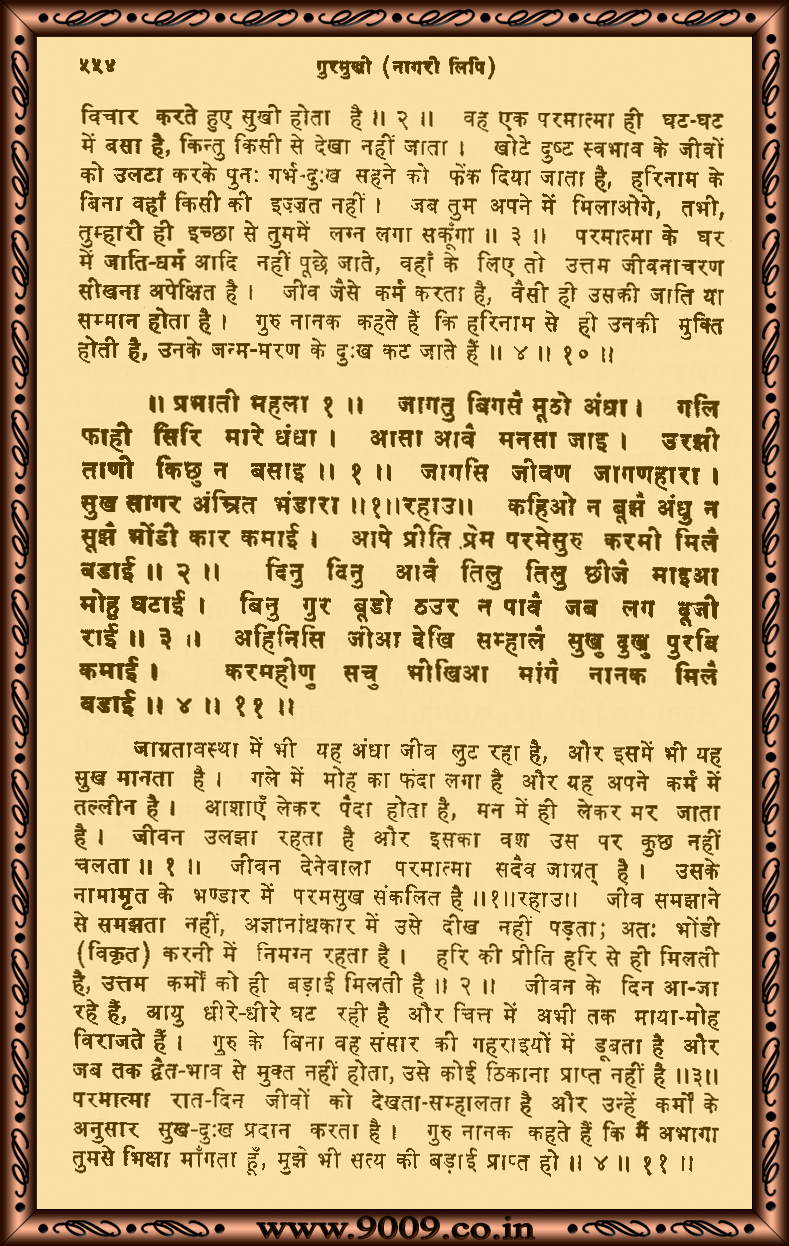 ५५४ गुरमुखी (नागरी लिपि)
विचार करते हुए सुखी होता है ॥ २ ॥ वह एक परमात्मा ही घट-घट
में बसा है, किन्तु किसी से देखा नहीं जाता । खोटे दुष्ट स्वभाव के जीवों
को उलटा करके पुनः गर्भ-दुःख सहने को फेंक दिया जाता है, हरिनाम के
बिना वहाँ किसी की इज़्ज़त नहीं । जब तुम अपने में मिलाओगे, तभी,
तुम्हारी ही इच्छा से तुममें लग्न लगा सकूँगा ॥ ३ ॥ परमात्मा के घर
में जाति-धर्म आदि नहीं पूछे जाते, वहाँ के लिए तो उत्तम जीवनाचरण
सीखना अपेक्षित है । जीव जैसे कर्म करता है, वैसी ही उसकी जाति या
सम्मान होता है । गुरु नानक कहते हैं कि हरिनाम से ही उनकी मुक्ति
होती है, उनके जन्म-मरण के दुःख कट जाते हैं ॥ ४ ॥ १० ॥
॥ प्रभाती महला १ ॥ जागतु बिगसै मूठो अंधा । गलि
फाही सिरि मारे धंधा । आसा आवै मनसा जाइ । उरझी
ताणी किछु न बसाइ ॥ १ ॥ जागसि जीवण जागणहारा ।
सुख सागर अंम्रित भंडारा ॥१॥रहाउ॥ कहिओ न बूझै अंधु न
सूझै भोंडी कार कमाई । आपे प्रीति प्रेम परमेसुरु करमी मिलै
बडाई ॥ २ ॥ दिनु दिनु आवै तिलु तिलु छीजै माइआ
मोहु घटाई । बिनु गुर बूडो ठउर न पावै जब लग दूजी
राई ॥ ३ ॥ अहिनिसि जीआ देखि सम्हालै सुखु दुखु पुरबि
कमाई । करमहीणु सचु भीखिआ मांगै नानक मिलै
बडाई ॥ ४ ॥ ११ ॥
जाग्रतावस्था में भी यह अंधा जीव लुट रहा है, और इसमें भी यह
सुख मानता है । गले में मोह का फंदा लगा है और यह अपने कर्म में
तल्लीन है । आशाएँ लेकर पैदा होता है, मन में ही लेकर मर जाता
है । जीवन उलझा रहता है और इसका वश उस पर कुछ नहीं
चलता ॥ १ ॥ जीवन देनेवाला परमात्मा सदैव जाग्रत् है । उसके
नामामृत के भण्डार में परमसुख संकलित है ॥१॥रहाउ॥ जीव समझाने
से समझता नहीं, अज्ञानांधकार में उसे दीख नहीं पड़ता; अतः भोंडी
(विकृत) करनी में निमग्न रहता है । हरि की प्रीति हरि से ही मिलती
है, उत्तम कर्मों को ही बड़ाई मिलती है ॥ २ ॥ जीवन के दिन आ-जा
रहे हैं, आयु धीरे-धीरे घट रही है और चित्त में अभी तक माया-मोह
विराजते हैं । गुरु के बिना वह संसार की गहराइयों में डूबता है और
जब तक द्वैत-भाव से मुक्त नहीं होता, उसे कोई ठिकाना प्राप्त नहीं है ॥३॥
परमात्मा रात-दिन जीवों को देखता-सम्हालता है और उन्हें कर्मों के
अनुसार सुख-दुःख प्रदान करता है । गुरु नानक कहते हैं कि मैं अभागा
तुमसे भिक्षा माँगता हूँ, मुझे भी सत्य की बड़ाई प्राप्त हो ॥ ४ ॥ ११ ॥
www.9009.co.in